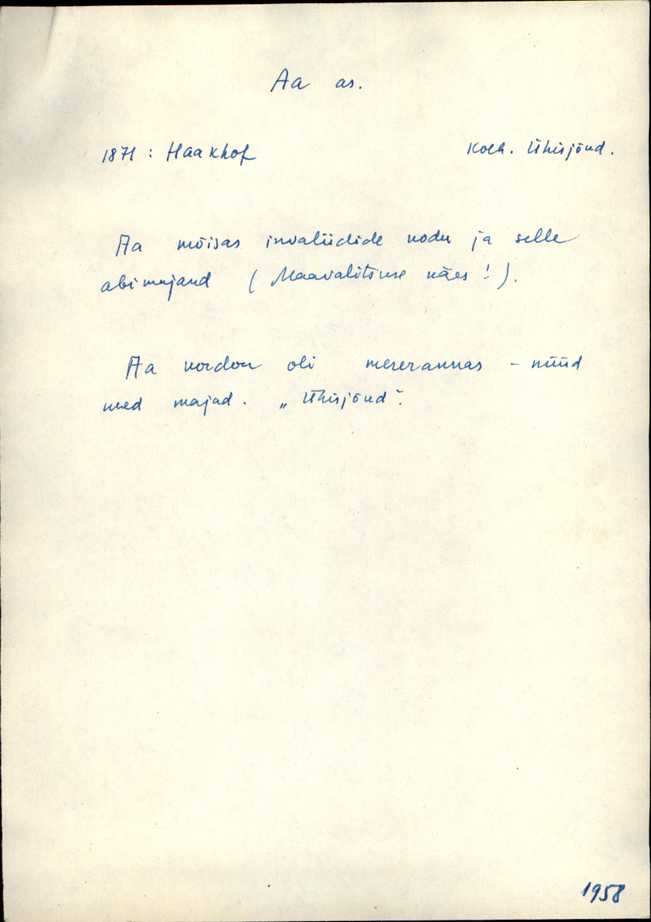 Aa as.
1871 : Haakhof Kolh. Ühisjõud.
Aa mõisas invaliidide kodu ja selle
abimajand (Maavalitsuse käes!).
Aa kordon oli mererannas - nüüd
need majad. „Ühisjõud".
1958